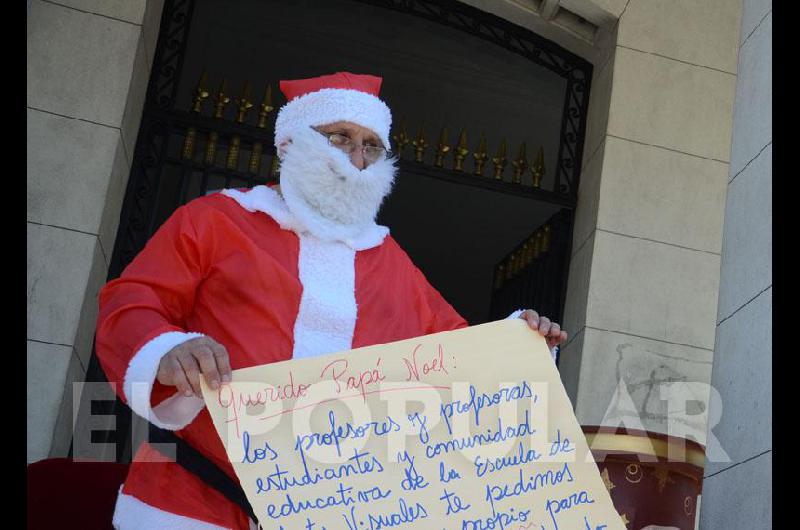 Querido Papá Noel:
los profesores y profesoras,
estudiantes y comunidad
educativa de la Escuela de
Visuales te pedimos
propio para
EL POPULAR